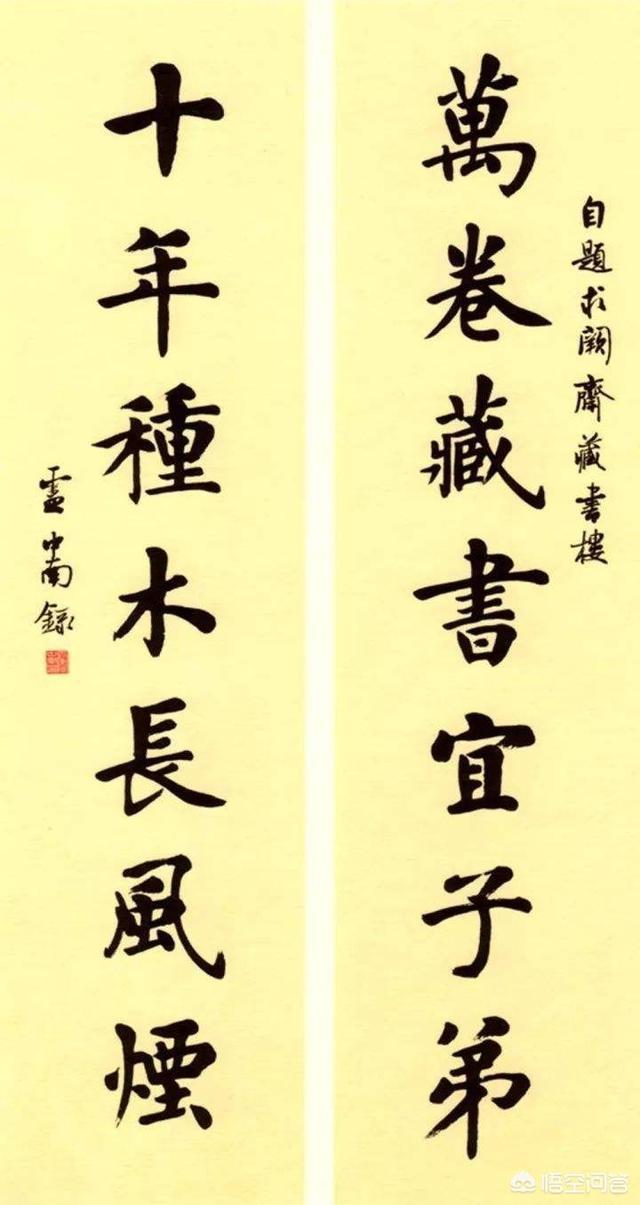 自題求闕齋藏書樓
萬卷藏書宜子弟
十年種木長風煙
盧中南錄
悟空问答